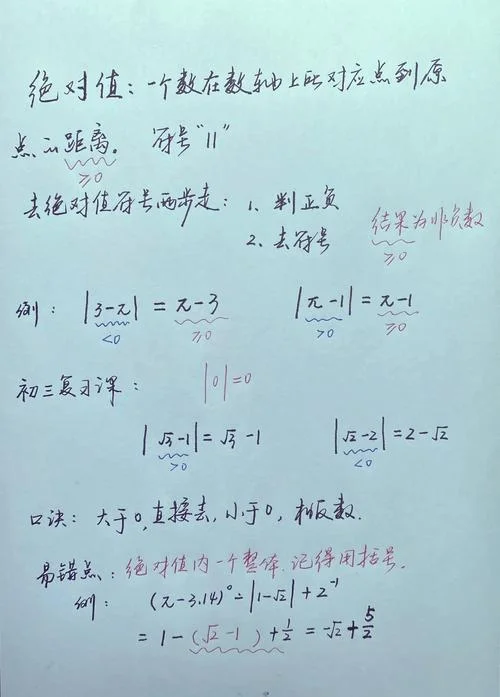 绝对值：一个数在数轴上所对应点到原
点的距离。 符号“||”
≥0
去绝对值符号两步走：1、判正负
2、去符号
结果为非负数
≥0
例： |3-π| = π-3 |π-1| = π-1
<0 ≥0 >0 ≥0
初三复习课： |0|=0
|√3-1|=√3-1 |√2-2|=2-√2
>0 <0
口诀：大于0,直接去,小于0,相反数.
易错点：绝对值内一个整体.记得用括号.
例： (π-3.14)⁰-|1-√2|+2⁻¹
= 1-(√2-1)+1/2 = -√2+5/2